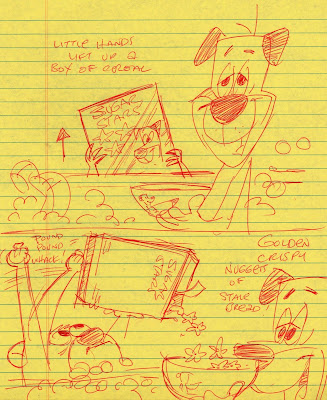 LITTLE HANDS
LIFT UP A
BOX OF CEREAL
SUGAR
STARS
POUND
POUND
WHACK
SUGAR
STARS
GOLDEN
CRISPY
NUGGETS
OF
STALE
BREAD!